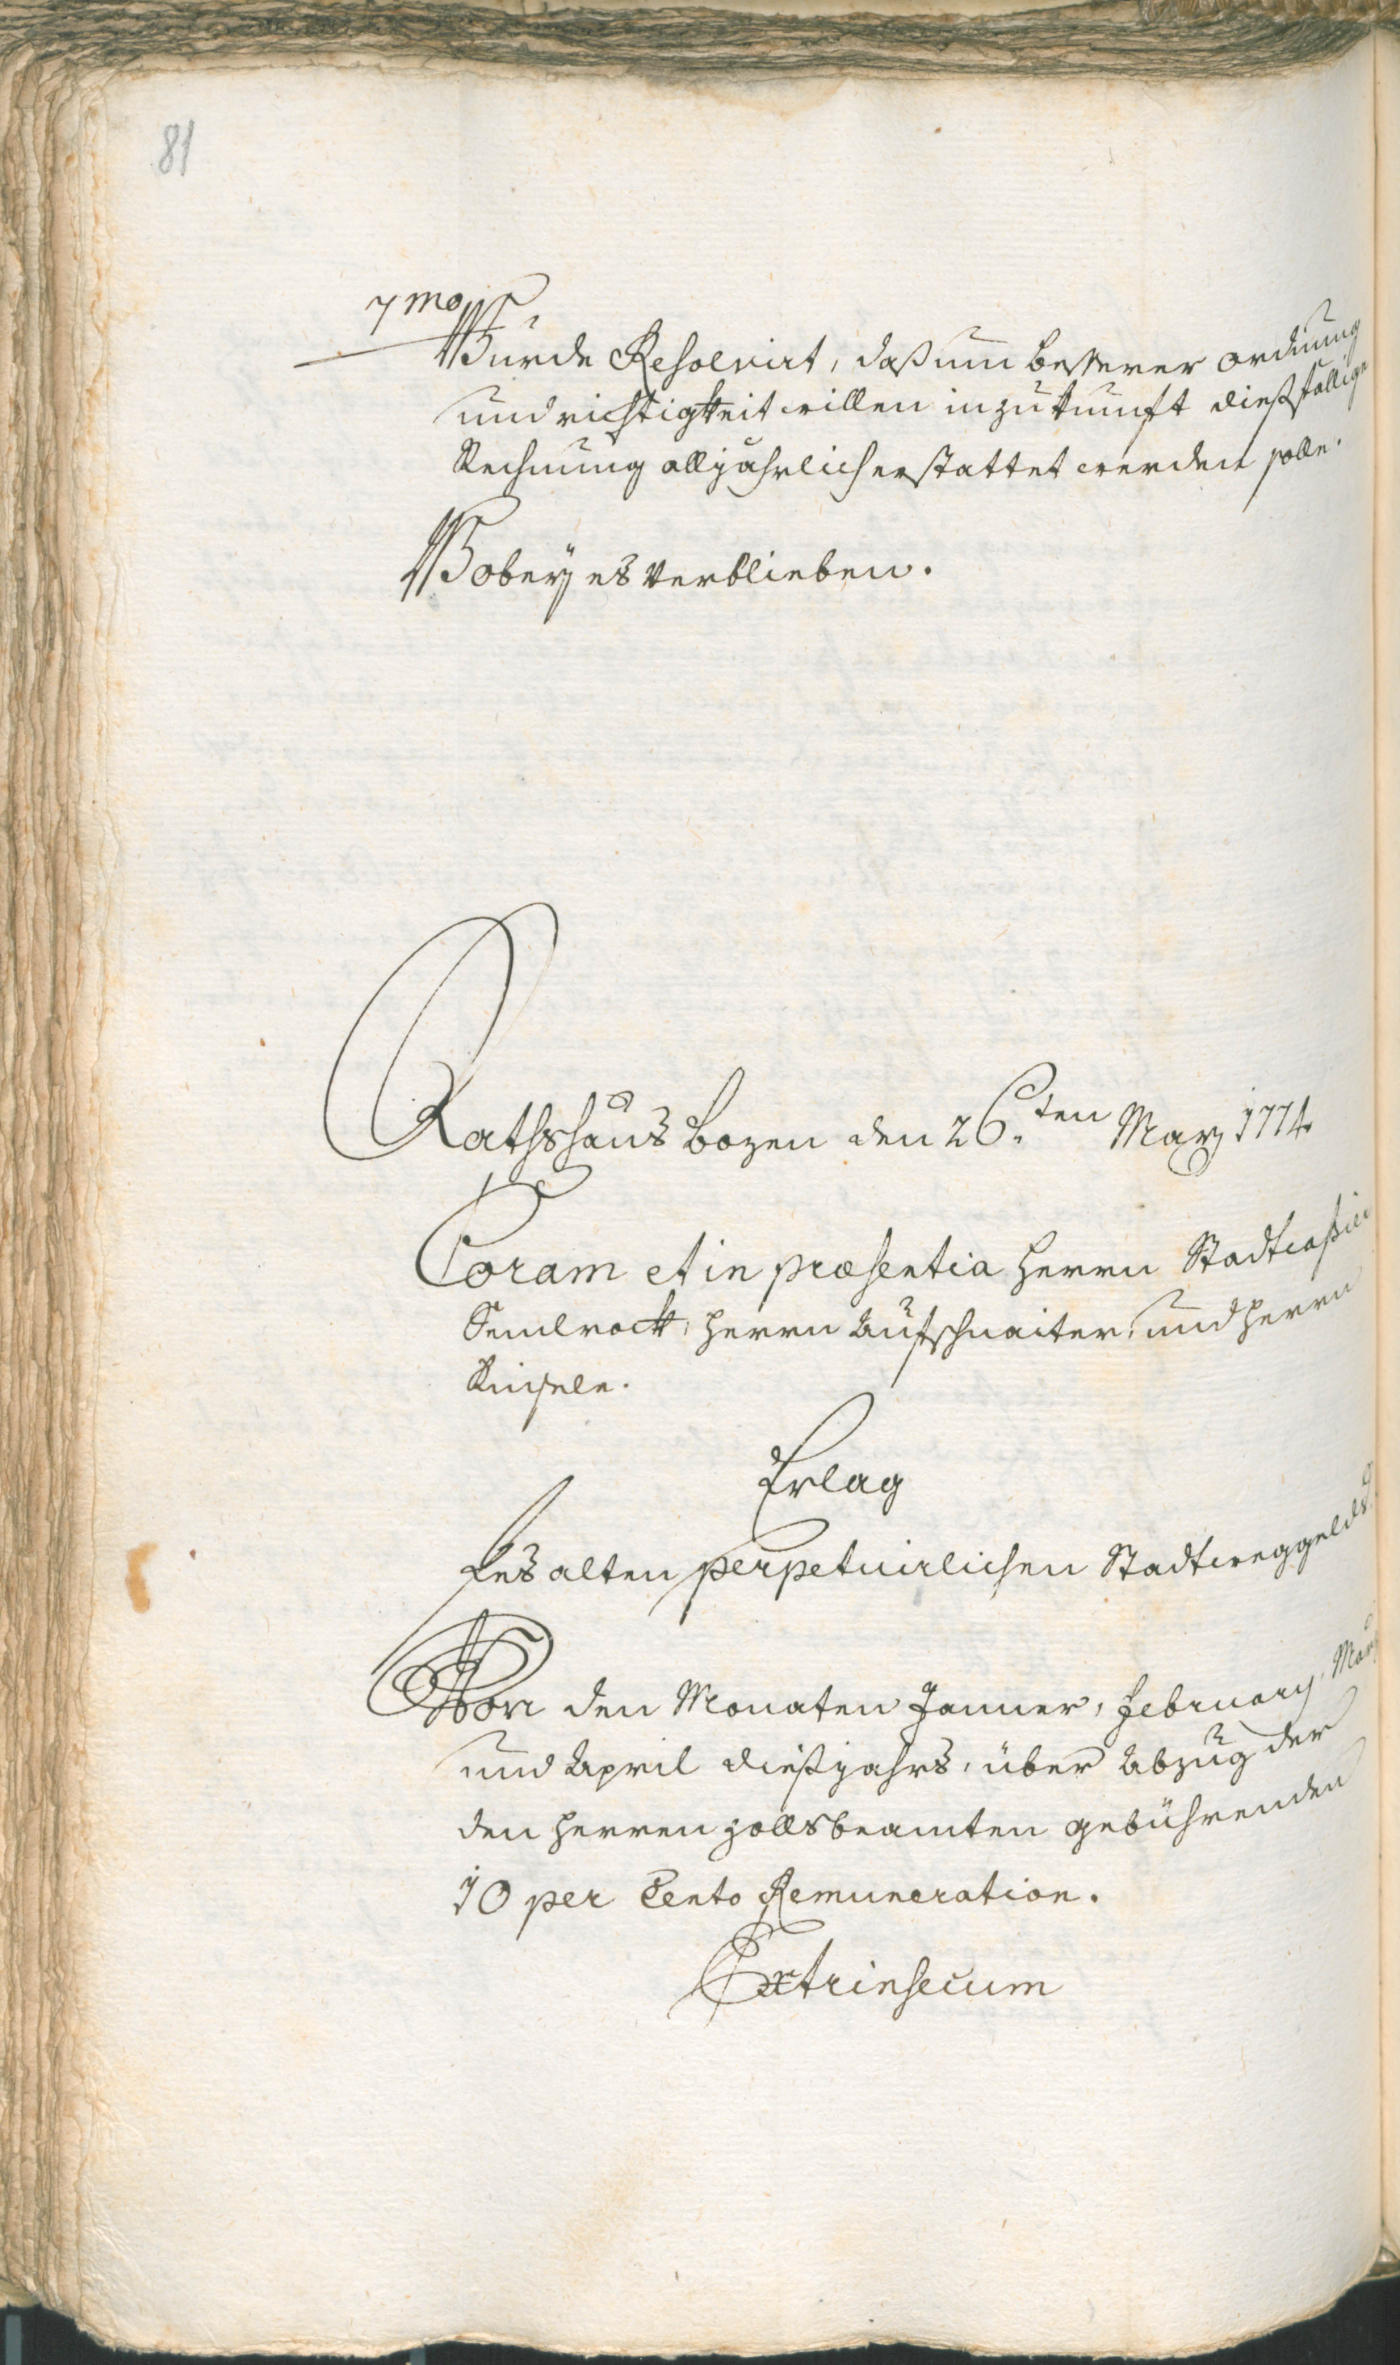 81
7mo
Wurde Resolvirt, daß um besserer ordnung
und richtigkeit willen in zukunft dießfällige
Rechnung alljährlich erstattet werden solle.
Wobey es verblieben.
Rathshaus Bozen den 26.ten Marz 1774
Coram et in præsentia Herrn Stadtcassier
Semlrock, Herrn Aufschnaiter, und Herrn
Erlag
des alten perpetuirlichen Stadtweggelds
Von den Monaten Janner, February, März
und April dießjahrs, über Abzug der
den Herren Zollsbeamten gebührenden
10 per Cento Remuneration.
Extrinsecum